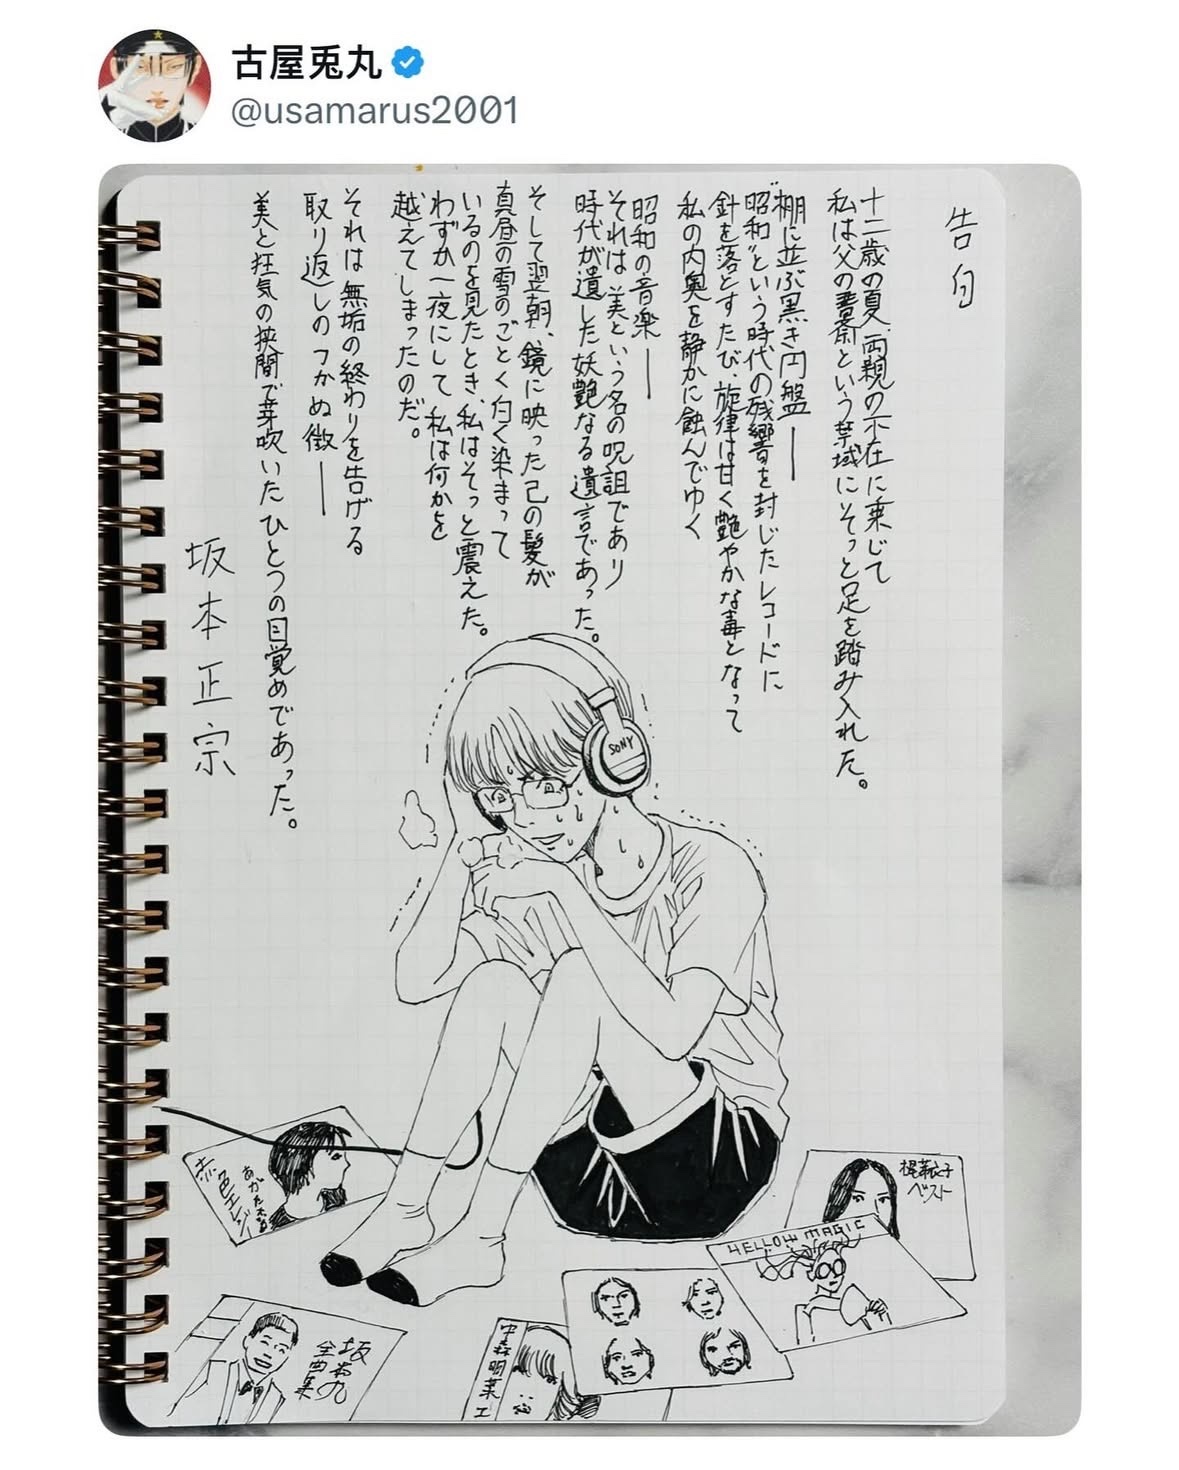 古屋兎丸
@usamarus2001
告白
十二歳の夏、両親の不在に乗じて
私は父の書斎という禁域にそっと足を踏み入れた。
棚に並ぶ黒き円盤——
"昭和"という時代の残響を封じたレコードに
針を落とすたび、旋律は甘く艶やかな毒となって
私の内奥を静かに蝕んでゆく
昭和の音楽——
それは美という名の呪詛であり
時代が遺した妖艶なる遺言であった。
そして翌朝、鏡に映った己の髪が
真昼の雪のごとく白く染まって
いるのを見たとき、私はそっと震えた。
わずか一夜にして私は何かを
越えてしまったのだ。
それは無垢の終わりを告げる
取り返しのつかぬ徴——
美と狂気の挟間で芽吹いたひとつの目覚めであった。
坂本正宗
SONY
赤色エレジー
あがた森魚
梶芽衣子
ベスト
YELLOW MAGIC
坂本九
全曲集
中森明菜